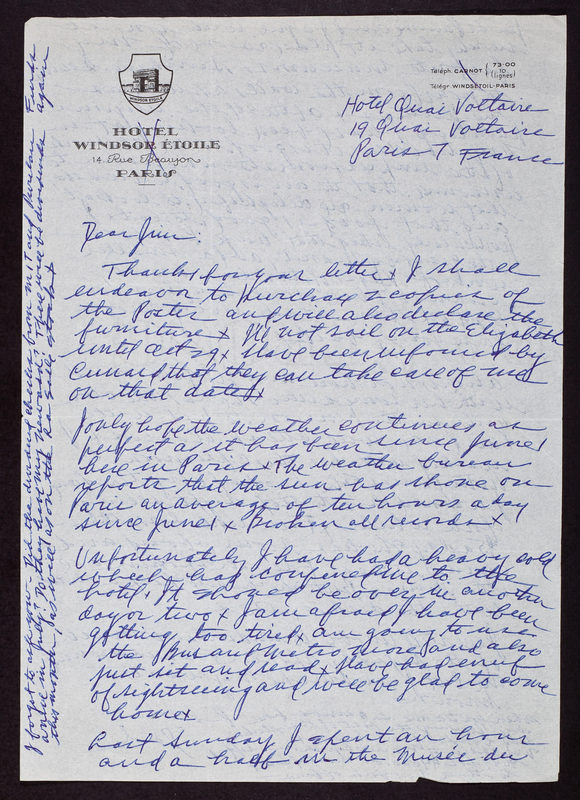 HOTEL
WINDSOR ÉTOILE
14. Rue Beaujon
PARIS
Téléph. CARNOT 73-00
10
(lignes)
Télégr. WINDSETOIL-PARIS
Hotel Quai Voltaire
19 Quai Voltaire
Paris 7 France
Dear Jim:
Thanks for your letter x I shall
endeavor to purchase 2 copies of
the Poster and will also declare the
furniture x I'll not sail on the Elizabeth
until Oct 29 x Have been informed by
Cunard that they can take care of me
on that date x
I only hope the weather continues as
perfect as it has been since June 1
here in Paris x The weather bureau
reports that the sun has shone on
Paris an average of ten hours a day
since June 1 x Broken all records x
Unfortunately I have had a heavy cold
which has confined me to the
hotel. It should be over in another
day or two x I am afraid I have been
getting too tired x am going to use
the Bus and Metro more and also
just sit and read x Have had enuf
of sightseeing and will be glad to come
home x
Last Sunday I spent an hour
and a half in the Musée du
I forgot to ask you - Did the dividend checks from MIT and Puritan Funds
arrive in July? Do they have my new add? There will be dividends again
this month, as well as on the stock x